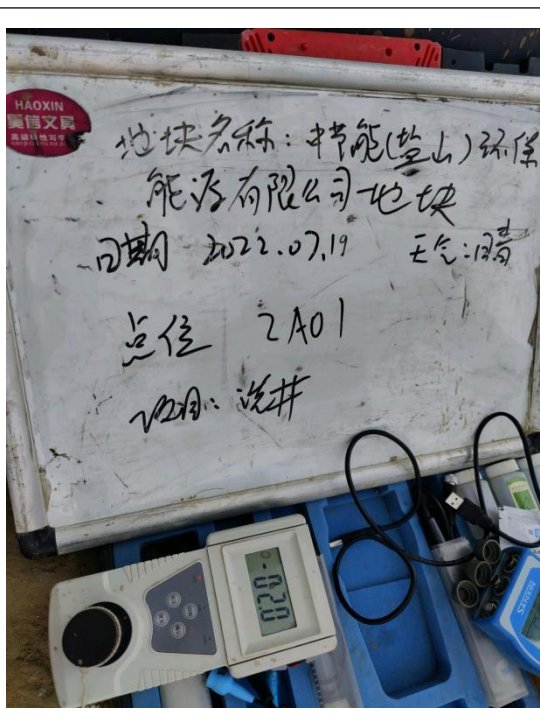 HAOXIN
昊信文具
地块名称：中节能(盐山)环保
能源有限公司地块
日期 2022.07.19 天气：晴
点位 2A01
项目：洗井
SANXIN